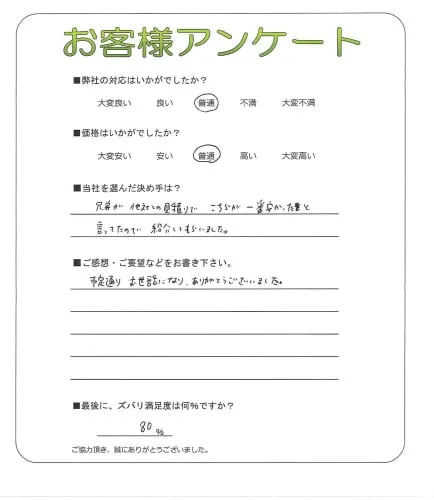 お客様アンケート
■弊社の対応はいかがでしたか？
大変良い 良い 普通 不満 大変不満
■価格はいかがでしたか？
大変安い 安い 普通 高い 大変高い
■当社を選んだ決め手は？
兄弟が 他社との見積りで こちらが 一番安かった事と
言ってたので 紹介してもらいました。
■ご感想・ご要望などをお書き下さい。
予定通り お世話になり、ありがとうございました。
■最後に、ズバリ満足度は何％ですか？
80 %
ご協力頂き、誠にありがとうございました。